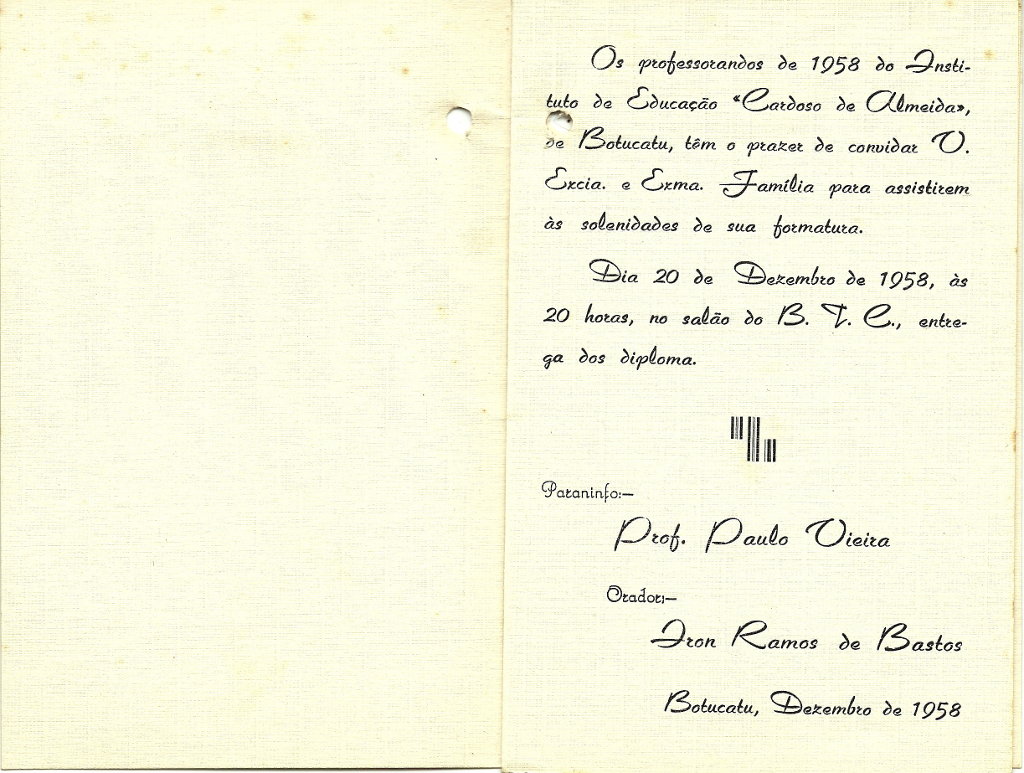 Os professorandos de 1958 do Insti-
tuto de Educação «Cardoso de Almeida»,
de Botucatu, têm o prazer de convidar V.
Excia. e Exma. Família para assistirem
às solenidades de sua formatura.
Dia 20 de Dezembro de 1958, às
20 horas, no salão do B. T. C., entre-
ga dos diploma.
Paraninfo:—
Prof. Paulo Vieira
Orador:—
Iron Ramos de Bastos
Botucatu, Dezembro de 1958